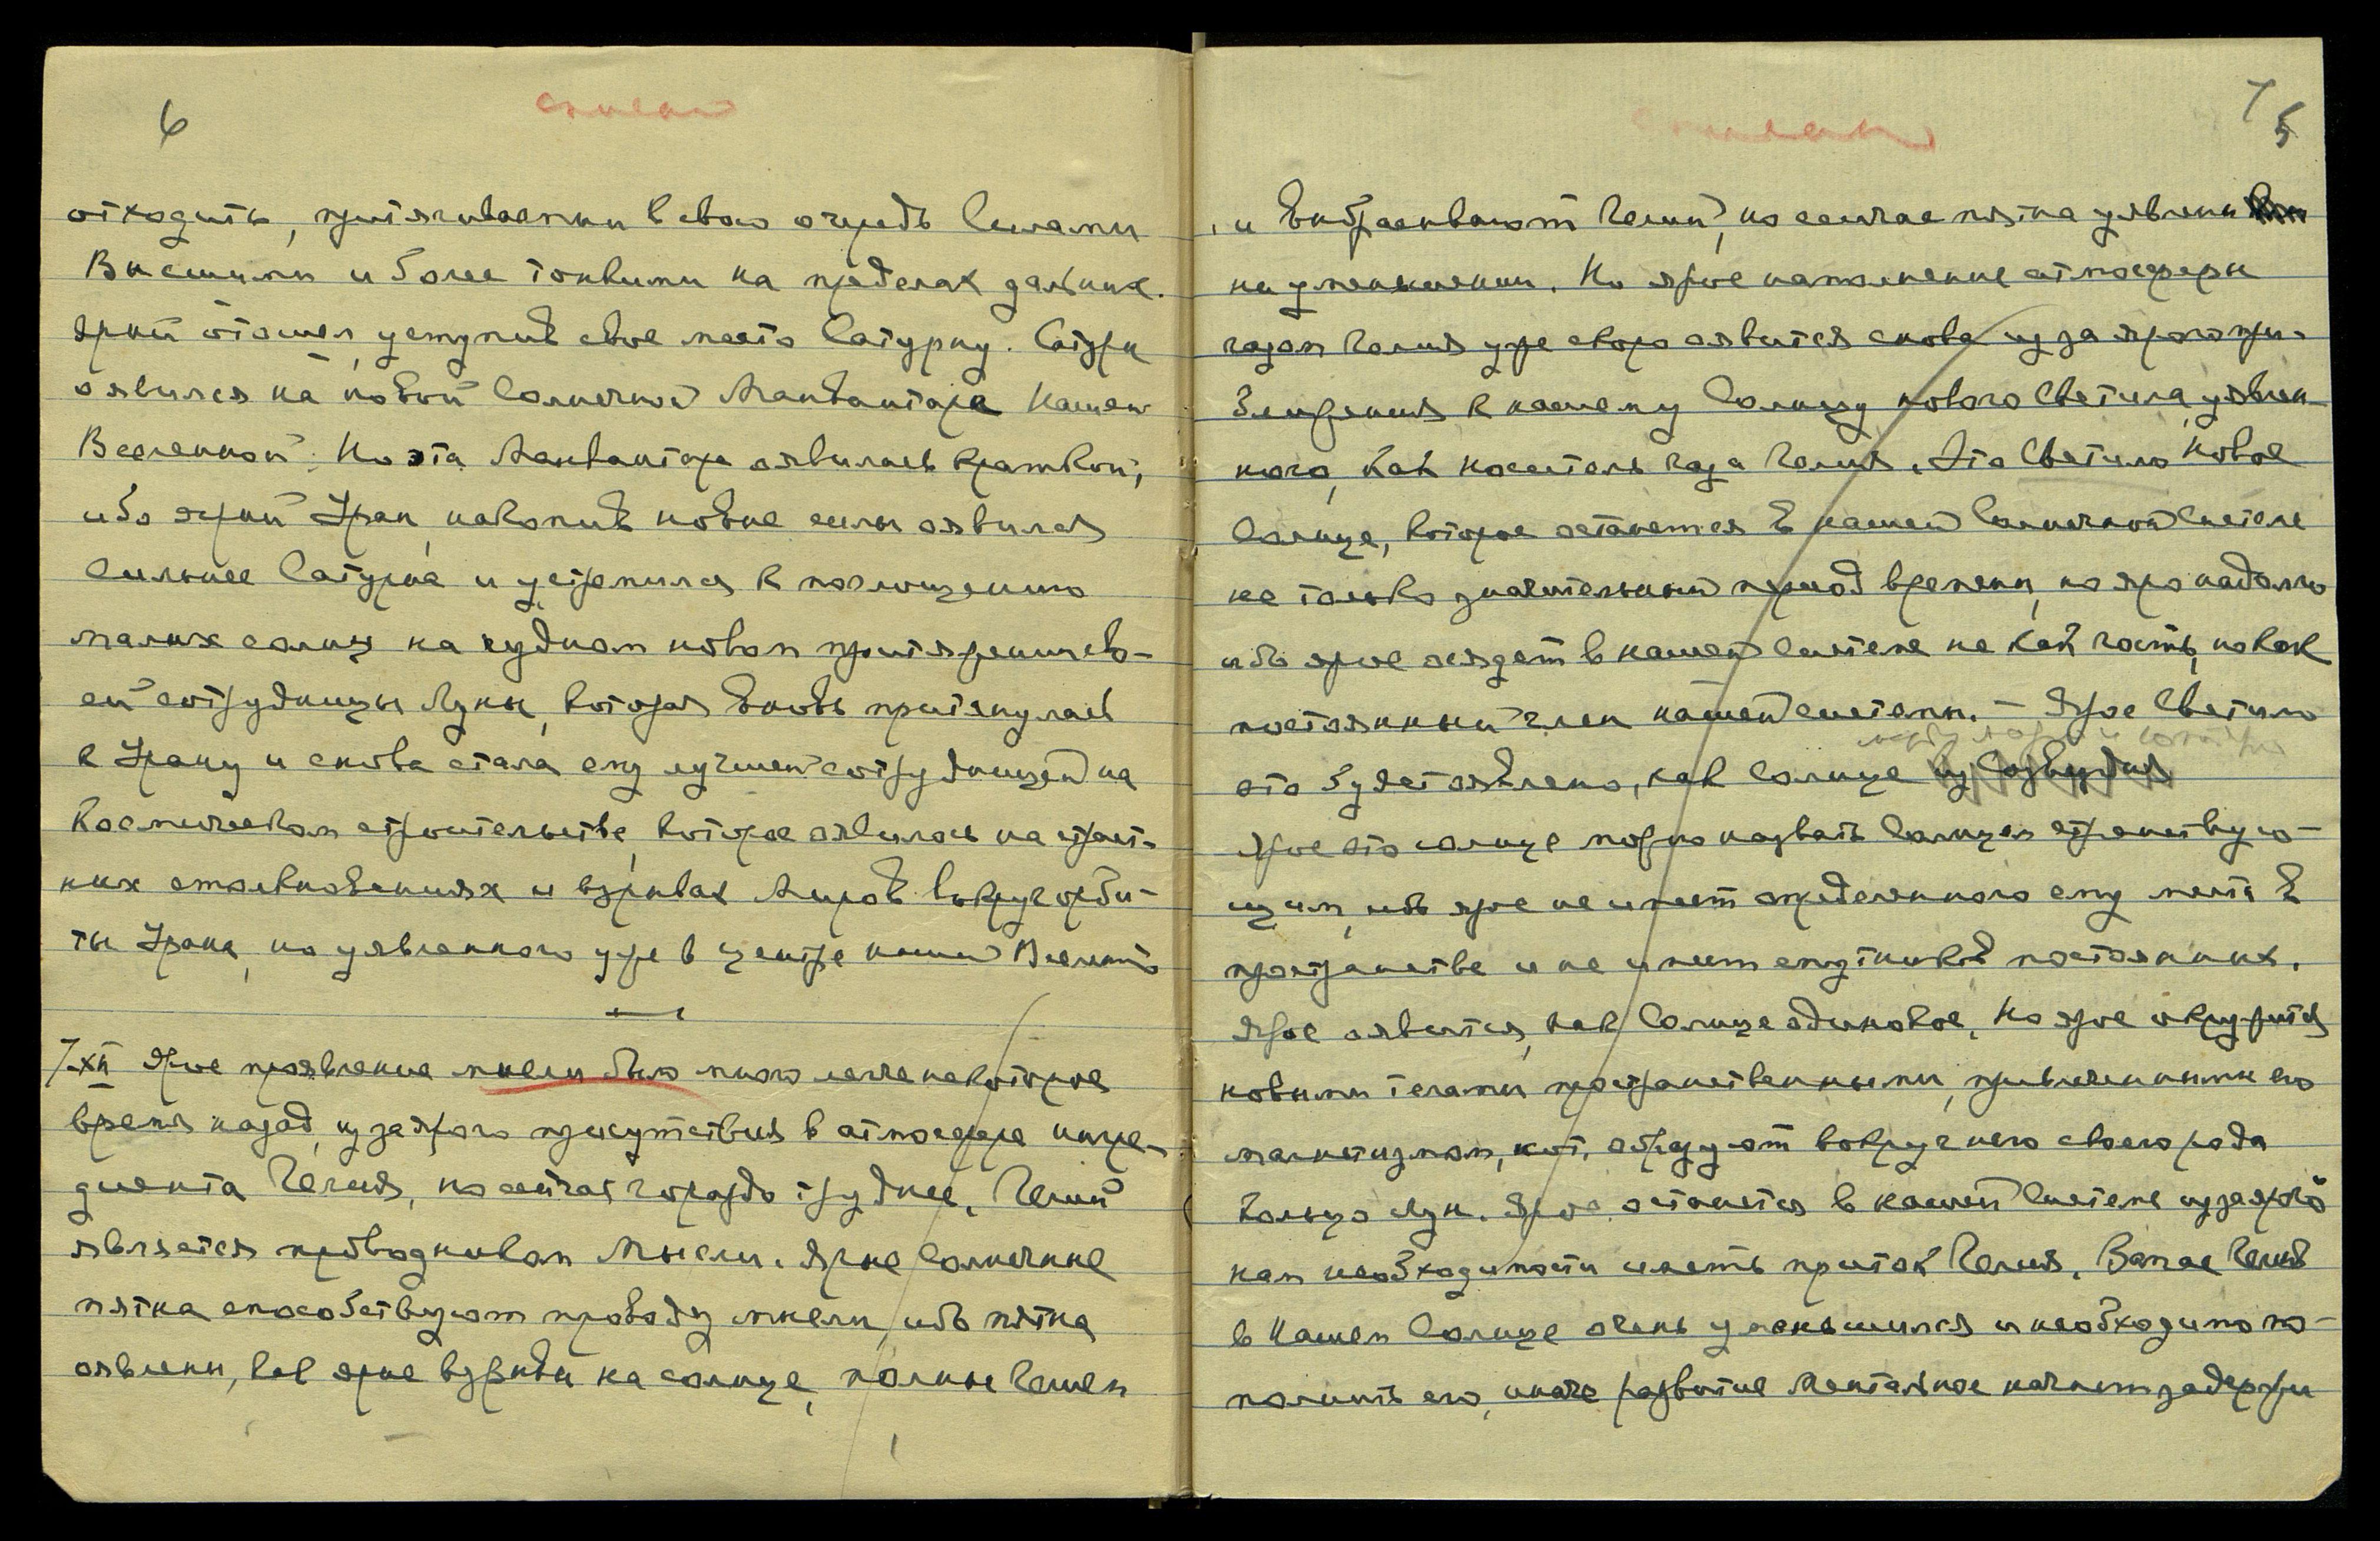 6
отходить, притягиваемый в свою очередь Силами
Высшими и более тонкими на пределах дальних.
Ярый отошел, уступив свое место Сатурну. Сатурн
оявился на новой Солнечной Манвантаре нашей
Вселенной. Но эта Манвантара оявилась краткой,
ибо ярый Уран, накопив новые силы оявился
сильнее Сатурна и устремился к поглощению
малых солнц на чудном новом притяжении сво-
ей сотрудницы Луны, которая вновь притянулась
к Урану и снова стала ему лучшей сотрудницей на
Космическом строительстве, которое оявилось на страст-
ных столкновениях и взрывах Миров вокруг орби-
ты Урана, но уявленного уже в центре нашей Вселенной
7-XII Ярое проявление мысли было много легче некоторое
время назад, из за ярого присутствия в атмосфере ингре-
диента Гелия, но сейчас гораздо труднее. Гелий
является проводником Мысли. Ярые Солнечные
пятна способствуют проводу мысли, ибо пятна
оявлены, как ярые взрывы на солнце, полные Гелием
7
5
и выбрасывают Гелий, но сейчас пятна уявлены
на уменьшении. Но ярое наполнение атмосферы
газом Гелия уже скоро оявится снова из за ярого при-
ближения к нашему Солнцу нового Светила, уявлен-
ного, как носитель газа Гелия. Это Светило Новое
Солнце, которое останется в нашей Солнечной Системе
не только значительный период времени, но яро надолго
ибо ярое осядет в нашей Системе не как гость, но как
постоянный член нашей системы. – Ярое Светило
это будет оявлено, как Солнце из Созвездия
Ярое это солнце можно назвать Солнцем странствую-
щим, ибо ярое не имеет определенного ему места в
пространстве и не имеет спутников постоянных.
Ярое оявится, как Солнце одинокое, но ярое окружится
новыми телами пространственными, привлеченными его
магнетизмом, кот. образуют вокруг него своего рода
Кольцо Лун. Ярое останется в нашей Системе из за ярой
нам необходимости иметь приток Гелия. Запас Гелия
в Нашем Солнце очень уменьшился и необходимо по-
полнить его, иначе развитие Ментальное начнет задержи